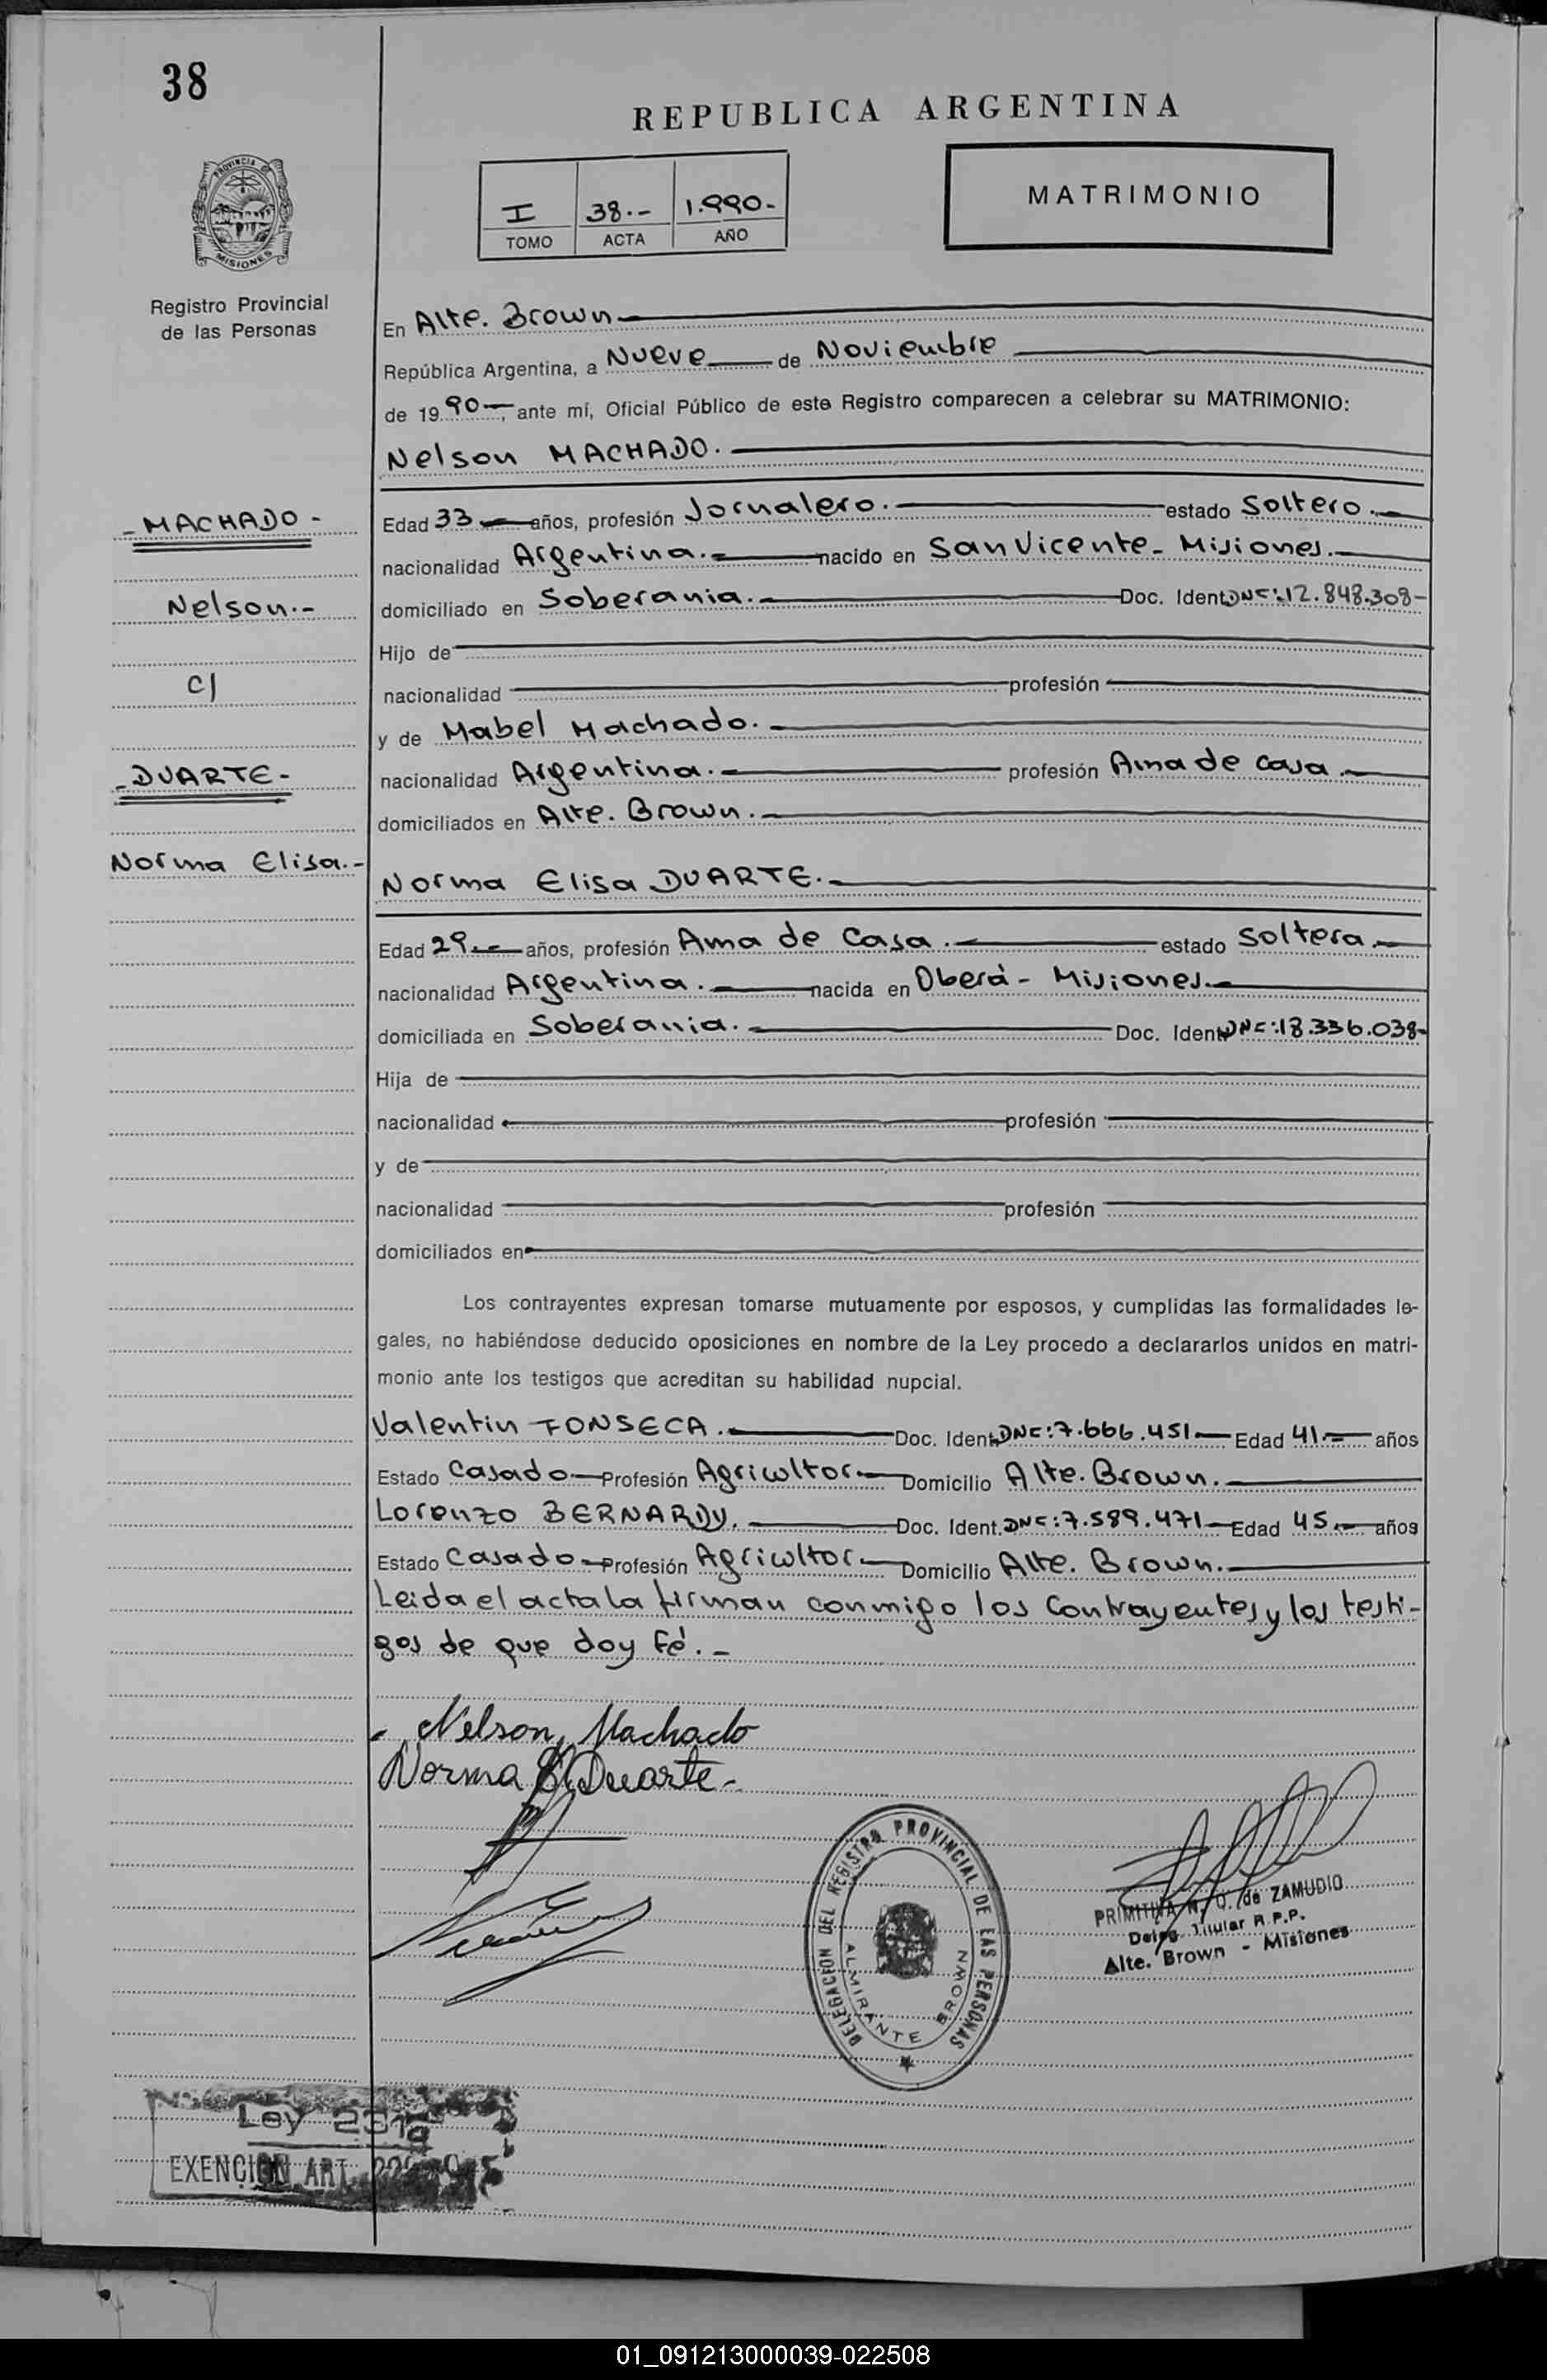 38
REPUBLICA ARGENTINA
PROVINCIA DE
MISIONES
Registro Provincial
de las Personas
I 38.- 1.990-
TOMO ACTA AÑO
MATRIMONIO
En Alte. Brown
República Argentina, a Nueve de Noviembre
de 19 90 , ante mí, Oficial Público de este Registro comparecen a celebrar su MATRIMONIO:
Nelson MACHADO.
- MACHADO -
Edad 33 años, profesión Jornalero. estado Soltero.
nacionalidad Argentina. nacido en San Vicente - Misiones.
Nelson.-
domiciliado en Soberania. Doc. Ident. 12.848.308-
Hijo de
c/
nacionalidad profesión
y de Mabel Machado.
- DUARTE -
nacionalidad Argentina. profesión Ama de casa
domiciliados en Alte. Brown.
Norma Elisa.-
Norma Elisa DUARTE.
Edad 29.- años, profesión Ama de Casa. estado Soltera.
nacionalidad Argentina. nacida en Oberá - Misiones.
domiciliada en Soberania. Doc. Ident 18.336.038-
Hija de
nacionalidad profesión
y de
nacionalidad profesión
domiciliados en
Los contrayentes expresan tomarse mutuamente por esposos, y cumplidas las formalidades le-
gales, no habiéndose deducido oposiciones en nombre de la Ley procedo a declararlos unidos en matri-
monio ante los testigos que acreditan su habilidad nupcial.
Valentin FONSECA. Doc. Ident. 7.666.451 Edad 41.- años
Estado Casado Profesión Agricultor. Domicilio Alte. Brown.
Lorenzo BERNARDY. Doc. Ident. 7.589.471 Edad 45.- años
Estado Casado Profesión Agricultor. Domicilio Alte. Brown.
Leida el acta la firman conmigo los Contrayentes y los testi-
gos de que doy fé.-
Nelson Machado
Norma E. Duarte
DELEGACION DEL REGISTRO PROVINCIAL DE LAS PERSONAS
ALMIRANTE BROWN
PRIMITIVA N. O. de ZAMUDIO
Deleg. Titular R.P.P.
Alte. Brown - Misiones
Ley
EXENCION ART.
01_091213000039-022508